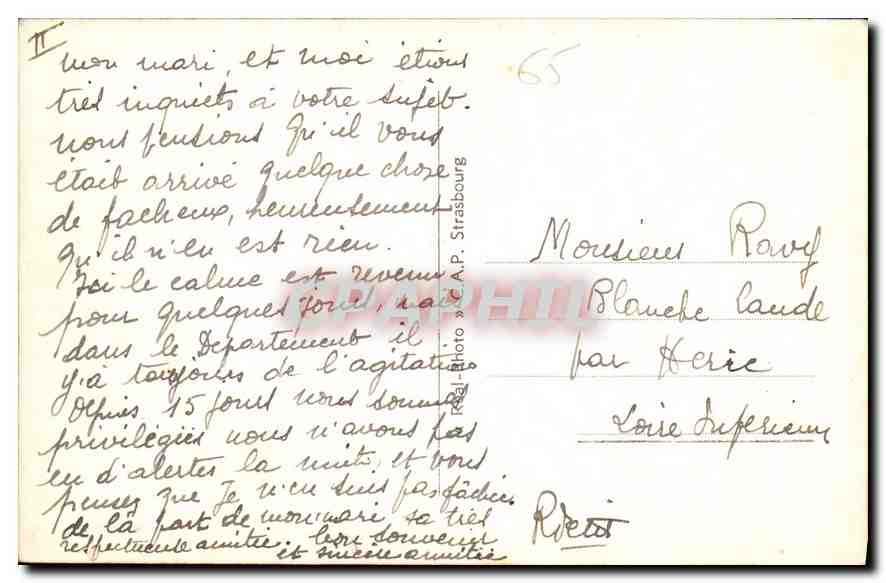 II
mon mari, et moi étions
très inquiets à votre sujet.
nous pensions qu'il vous
était arrivé quelque chose
de facheux, heureusement
qu'il n'en est rien.
Ici le calme est revenu
pour quelques jours mais
dans le Département il
y'à toujours de l'agitation
Depuis 15 jours nous sommes
privilégiés nous n'avons pas
eu d'alertes la nuit, et vous
pensez que je n'en suis pas fâchée.
de la part de mon mari, sa très
respectueuse amitié. bon souvenir
et sincère amitié
65
Réal-Photo » C.A.P. Strasbourg
CRAPHIL
Monsieur Ravy
Blanche Laude
par Heric
Loire Inférieure